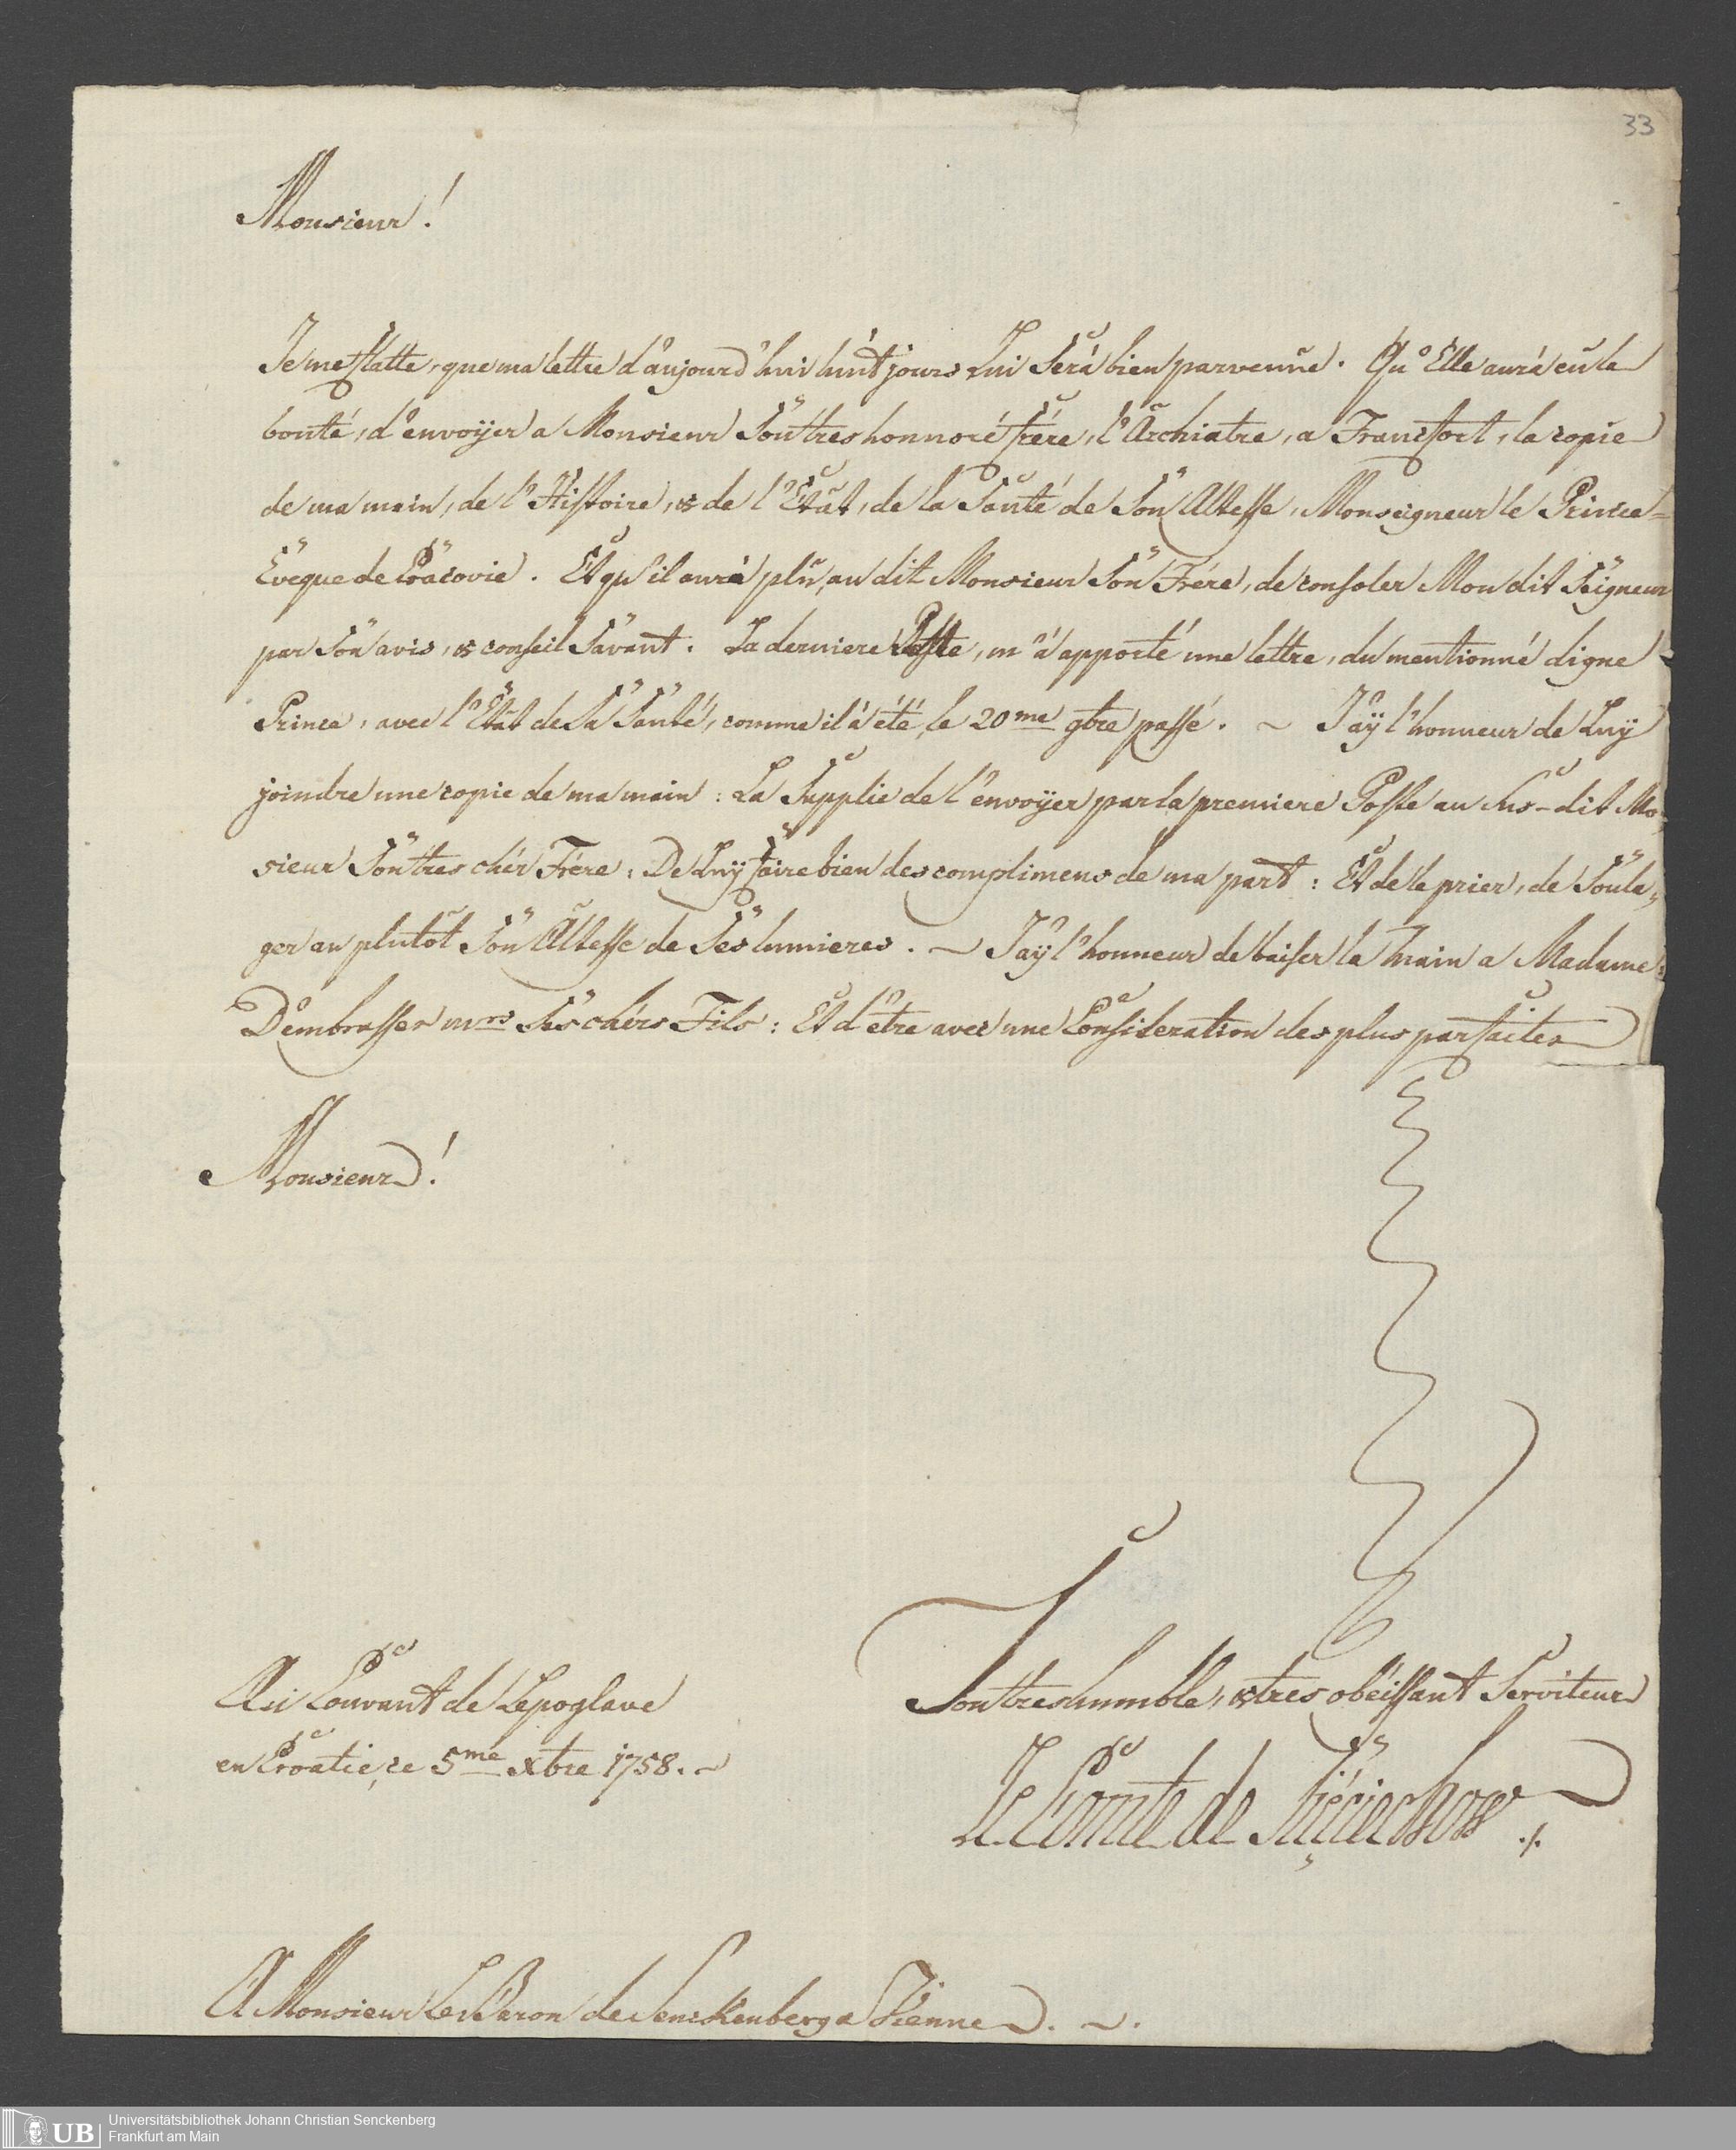 33
Monsieur!
Je me flatte, que ma lettre d'aujourd'hui huit jours Lui Será bien parvenüe. Qu'Elle aurá eû la
bonté, d'envoÿer a Monsieur Son tres honnoré frére, l'Archiatre, a Francfort, la copie
de ma main, de l'Histoire, & de l'Etat, de la Santé de Son Altesse, Monseigneur le Prince=
Evêque de Cracovie. Et qu'il aurá plû, au dit Monsieur Son Frére, de consoler Mon dit Seigneur
par Son avis, & conseil Savant. La derniere Poste, m'á apporté une lettre, du mentionné digne
Prince, avec l'Etat de Sa Santé, comme il á été, le 20me 9bre passé. ~ J'aÿ l'honneur de Luÿ
joindre une copie de ma main: La Supplie de l'envoÿer par la premiere Poste au Sus-dit Mo,
sieur Son tres chér Frére: De Luÿ faire bien des complimens de ma part: Et de le prier, de Soula,
ger au plutôt Son Altesse de Ses lumieres. ~ J'aÿ l'honneur de baiser la main a Madame:
D'embrasser mrs Ses chérs Fils: Et d'être avec une Consideration des plus parfaites
Monsieur!
Au Couvant de Lepoglave
en Croatie, ce 5me xbre 1758. ~
Son tres humble, & tres obéissant Serviteur
Le Comte de
A Monsieur Le Baron de Senckenberg a Vienne. ~.
UB
Universitätsbibliothek Johann Christian Senckenberg
Frankfurt am Main